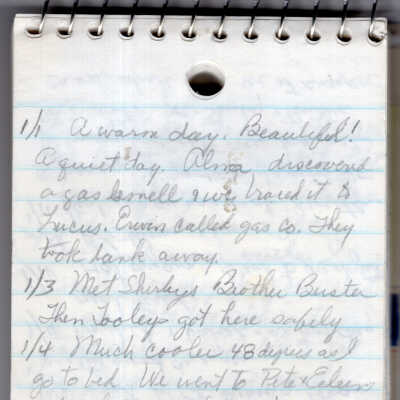 1/1 A warm day. Beautiful!
A quiet day. Alma discovered
a gas smell & we traced it to
Lucus. Erwin called gas co. They
took tank away.
1/3 Met Shirleys Brother Buster
Then Tooleys got here safely
1/4 Much cooler 48 degrees as I
go to bed. We went to Pete & Eileens